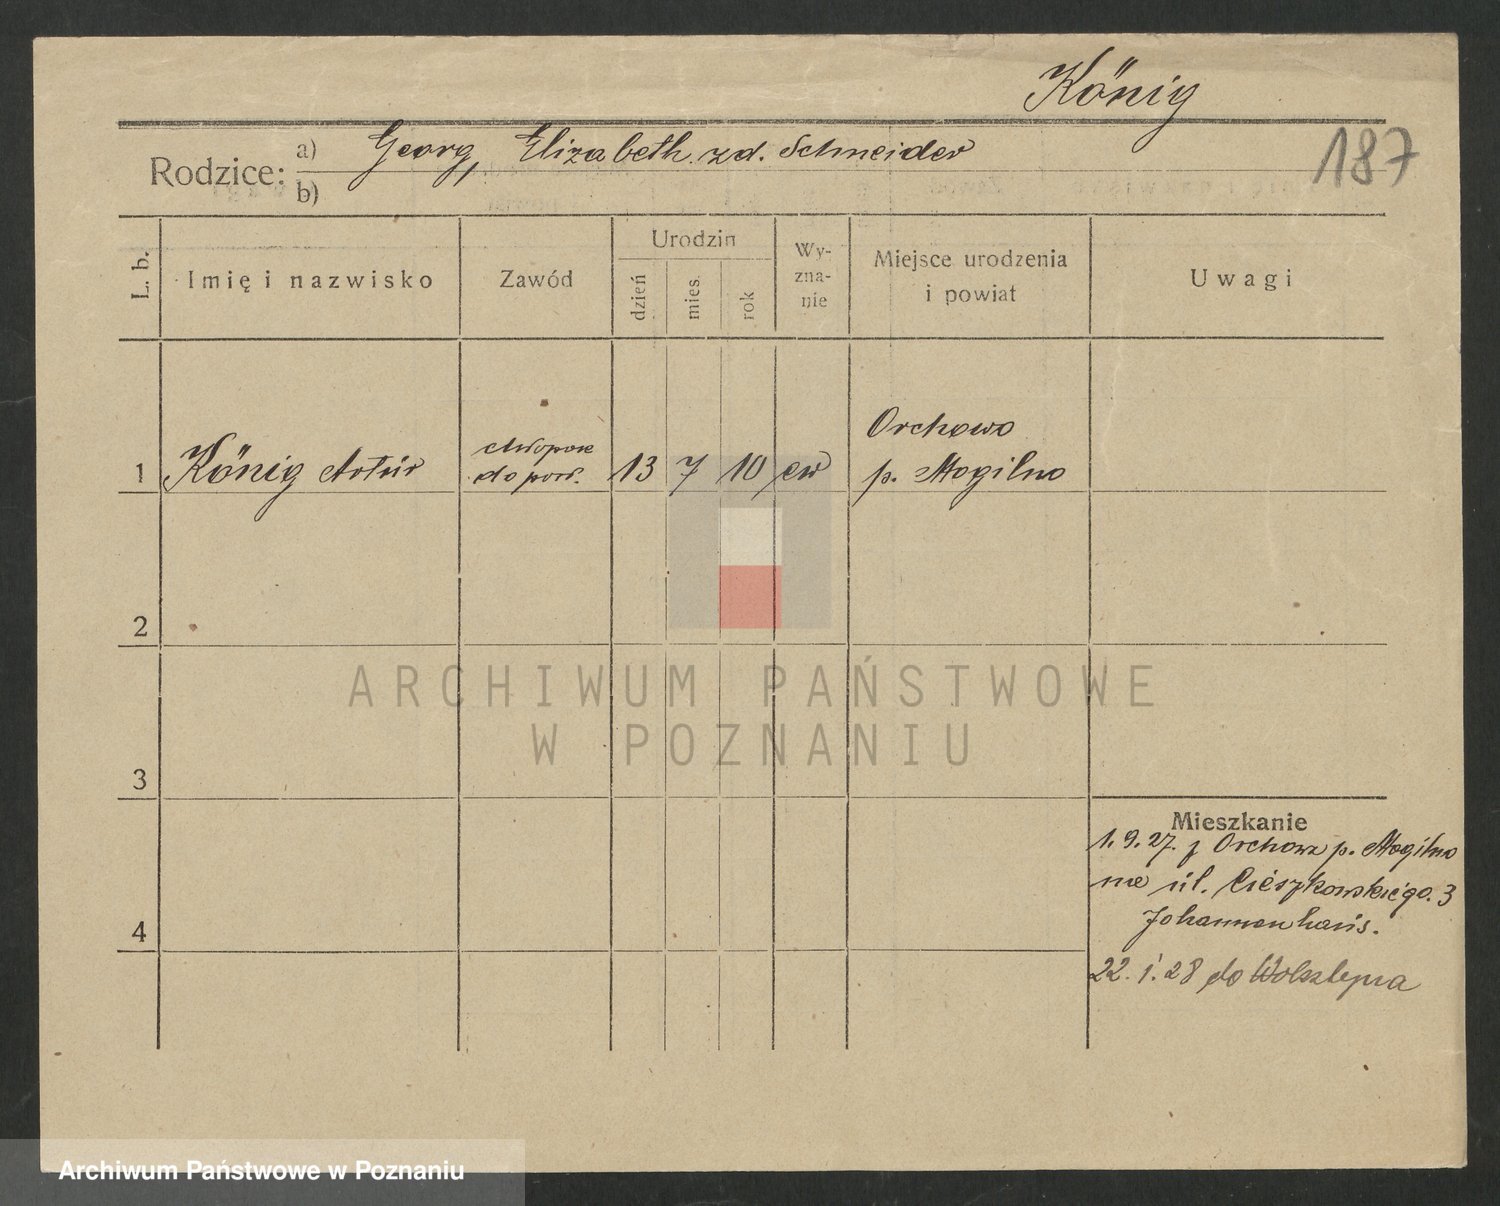 König
187
Rodzice:
a) Georg, Elizabeth zd. Schneider
b)
L. b.
Imię i nazwisko
Zawód
Urodzin
dzień
mies.
rok
Wy-
zna-
nie
Miejsce urodzenia
i powiat
Uwagi
1
König Artúr
chłopak
do posł.
13 7 10 ew
Orchowo
p. Mogilno
2
3
4
Mieszkanie
1.9.27. z Orchowa p. Mogilno
na úl. Cieszkowskiégo. 3
Johannenhaús.
22.1.28 do Wolsztyna
ARCHIWUM PAŃSTWOWE
W POZNANIU
Archiwum Państwowe w Poznaniu